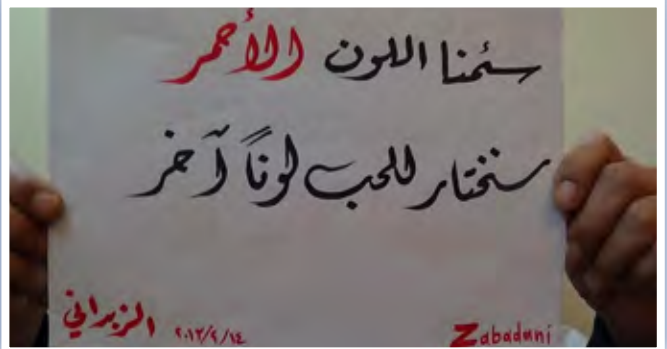 سئمنا اللون الأحمر
سنختار للحب لونًا آخر
الزبداني ٢٠١٣/٢/١٤
Zabadani